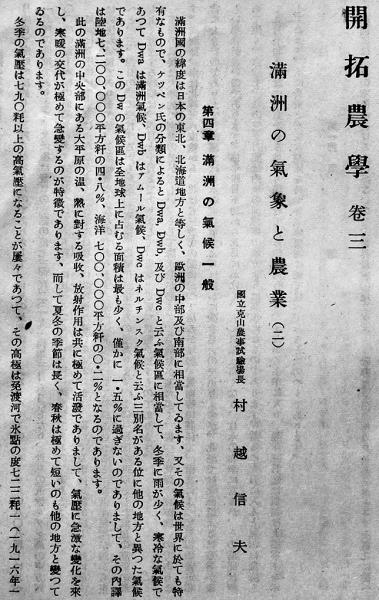 開拓農學 卷三
滿洲の氣象と農業(二)
國立克山農事試驗場長 村越信夫
第四章 滿洲の氣候一般
滿洲國の緯度は日本の東北、北海道地方と等しく、歐洲の中部及び南部に相當してゐます、又その氣候は世界に於ても特
有なもので、ケツペン氏の分類によると Dwa, Dwb, 及び Dwc と云ふ氣候區に相當して、冬季に雨が少く、寒冷な氣候で
あつて Dwa は滿洲氣候、Dwb はアムール氣候、Dwc はネルチンスク氣候と云ふ三別名がある位に他の地方と異つた氣候
であります。この Dw の氣候區は全地球上に占むる面積は最も少く、僅かに一・五%に過ぎないのでありまして、その內譯
は陸地七、二〇〇、〇〇〇平方粁の四・八%、海洋七〇〇、〇〇〇平方粁の〇・二%となるのであります。
此の滿洲の中央部にある大平原の溫、熱に對する吸收、放射作用は共に極めて活潑でありまして、氣壓に急激な變化を來
し、寒暖の交代が極めて急變するのが特徵であります、而して夏冬の季節は長く、春秋は極めて短いのも他の地方と變つて
ゐるのであります。
冬季の氣壓は七九〇粍以上の高氣壓になることが屢々であつて、その高極は免渡河で氷點の度七二二粍一(一九一六年一